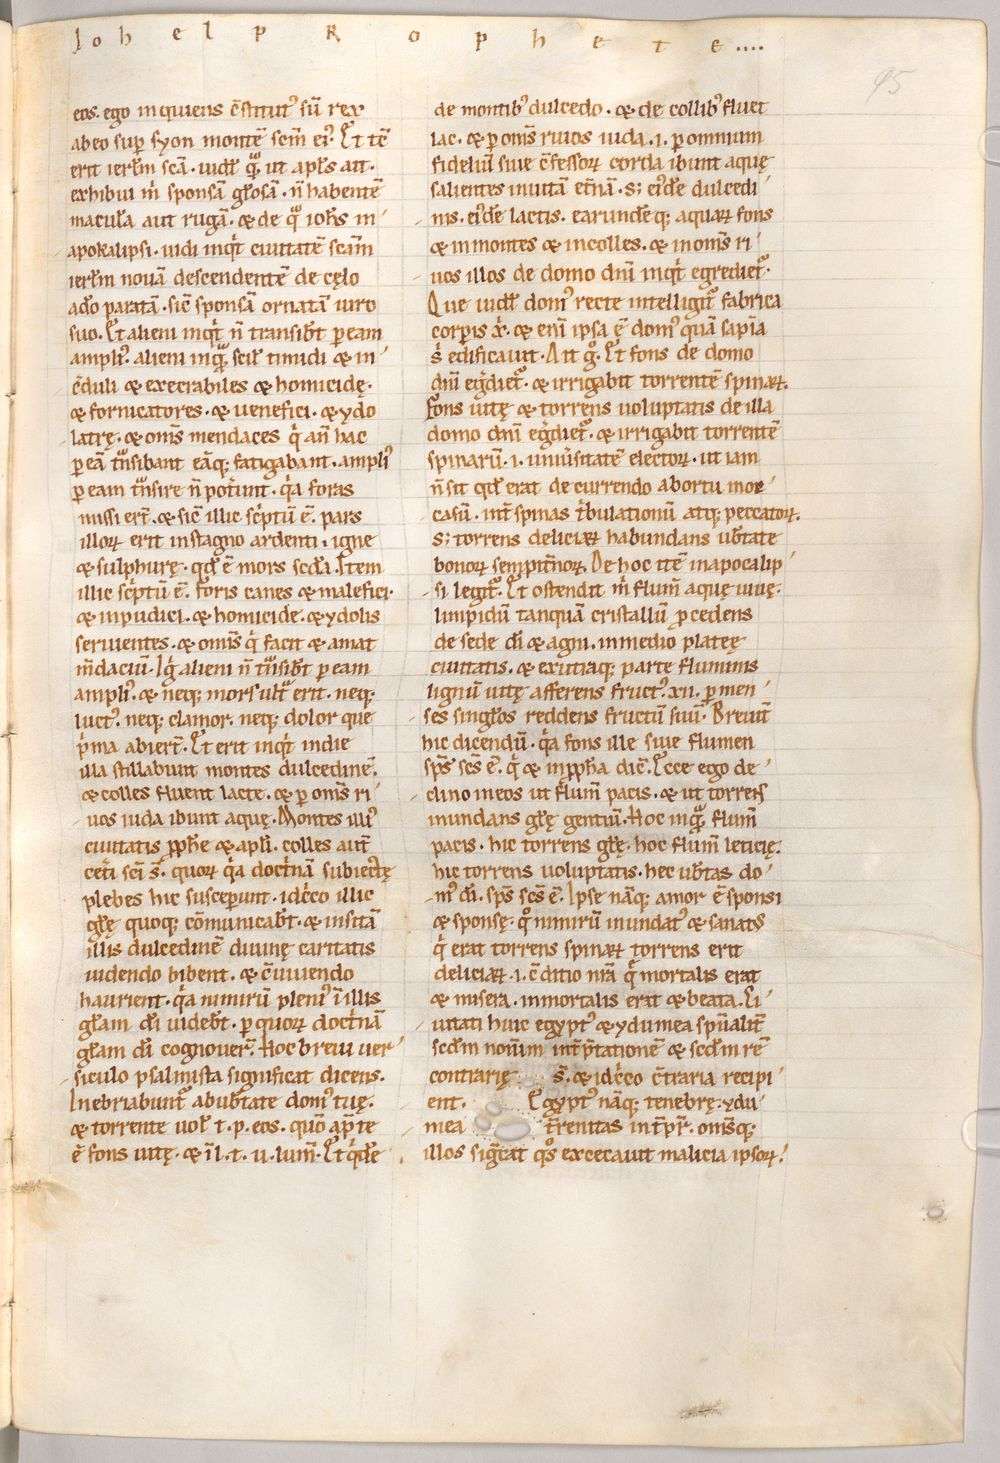 Johel prophete....
95
eos. ego inquiens c̄stitutꝰ sū rex
abeo sup syon montē scm̄ eiꝰ. Et tē
erit ierl̄m scā. uidꝉ q̄ ut apl̄s ait.
exhibui m̄ sponsā gl̄osā. n̄ habentē
maculā aut rugā. & de q̄ ioh̄s in
apokalipsi. uidi inqͥt ciuitatē scām
ierl̄m nouā descendentē de cęlo
a do paratā. sic̄ sponsā ornatā uiro
suo. Et alieni inqͥt n̄ transibt̄ p eam
ampliꝰ. alieni inq̄ scil̄ timidi & in
c̄duli & execrabiles & homicidę.
& fornicatores. & uenefici. & ydo
latrę. & om̄s mendaces qͥ an̄ hac
p eā tn̄sibant eāq; fatigabant. ampliꝰ
p eam tn̄sire n̄ potͥunt. qͥa foras
missi er̄t. & sic̄ illic scͥptū ē. pars
illoꝝ erit in stagno ardenti. igne
& sulphurę. qd̄ ē mors scd̄a. Item
illic scͥptū ē. foris canes & malefici.
& inpudici. & homicide. & ydolis
seruientes. & om̄s qͥ facit & amat
m̄daciū. Igͥ alieni n̄ tn̄sibt̄ p eam
ampliꝰ. & neq; mors ult̄ erit. neq;
luctꝰ. neq; clamor. neq; dolor que
pͥma abier̄t. Et erit inqͥt in die
illa stillabunt montes dulcedinē.
& colles fluent lacte. & p om̄s ri
uos iuda ibunt aquę. Montes illiꝰ
ciuitatis pph̄e & apl̄i. colles aut̄
cet̄i sc̄i s̄. quoꝝ qͥa doctͥnā subiectę
plebes hic suscepunt. idcͥco illic
gl̄ę quoq; cōmunicabt̄. & insitā
illis dulcedinē diuinę caritatis
uidendo bibent. & c̄uiuendo
haurient. qͥa nimirū pleniꝰ ī illis
gl̄am dī uidebt̄. p quoꝝ doctͥnā
gl̄am dī cognouer̄. Hoc breui uer
siculo psalmista significat dicens.
Inebriabunt̄ ab ubt̄ate domꝰ tuę.
& torrente uol̄ t. p. eos. quō ap̄ te
ē fons uitę. & ī l. t. u. lum̄. Et qͥde
de montibꝰ dulcedo. & de collibꝰ fluet
lac. & p om̄s riuos iuda. i. p omnium
fideliū siue c̄fessoꝝ corda ibunt aquę
salientes in uitā et̄nā. s; eiꝰde dulcedi
nis. eiꝰde lactis. earundēq; aquaꝝ fons
& in montes & in colles. & in om̄s ri
uos illos de domo dn̄i inqͥt egrediet̄.
Que uidꝉ domꝰ recte intelligit̄ fabrica
corpis x̄. & eni ipsa ē domꝰ quā sapīa
s̄ edificauit. Ait gͦ. Et fons de domo
dn̄i egͥdiet̄. & irrigabit torrentē spinaꝝ.
Fons uitę & torrens uoluptatis de illa
domo dn̄i egͥdiet̄. & irrigabit torrentē
spinarū. i. uniūsitatē electoꝝ. ut iam
n̄ sit qd̄ erat de currendo abortu inoc
casū. int̄ spinas tͥbulationū atq; peccatoꝝ.
s; torrens deliciaꝝ habundans ubt̄ate
bonoꝝ sempit̄noꝝ. De hoc itē in apocalip
si legit̄. Et ostendit m̄ flum̄ aquę uiuę.
limpidū tanquā cristallū p cedens
de sede dī & agni. in medio plateę
ciuitatis. & ex utraq; parte fluminis
lignū uitę afferens fructꝰ. xii. p men
ses singl̄os reddens fructū suū. Breuit̄
hic dicendū. qͥa fons ille siue flumen
sp̄s sc̄s ē. qͥ & in pph̄a dic̄. Ecce ego de
clino in eos ut flum̄ pacis. & ut torrens
inundans gl̄ę gentiū. Hoc inq̄ flum̄
pacis. hic torrens gl̄ę. hoc flum̄ leticię.
hic torrens uoluptatis. hec ubt̄as do
mꝰ dī. sp̄s sc̄s ē. Ipse nāq; amor ē sponsi
& sponsę. qͦ nimirū mundatꝰ & sanatꝰ
qͥ erat torrens spinaꝝ torrens erit
deliciaꝝ. i. c̄ditio nr̄a qͥ mortalis erat
& misera. inmortalis erit & beata. Ci
uitati huic egyptꝰ & ydumea spūalit̄
scd̄m nominū int̄p̄tationē & scd̄m rē
contrarię s̄. & idcͥco c̄traria recipi
ent. Egyptꝰ nāq; tenebrę. ydu
mea t̄renitas int̄pr̄. om̄sq;
illos sigͥcat qͦs excecauit malicia ipsoꝝ.